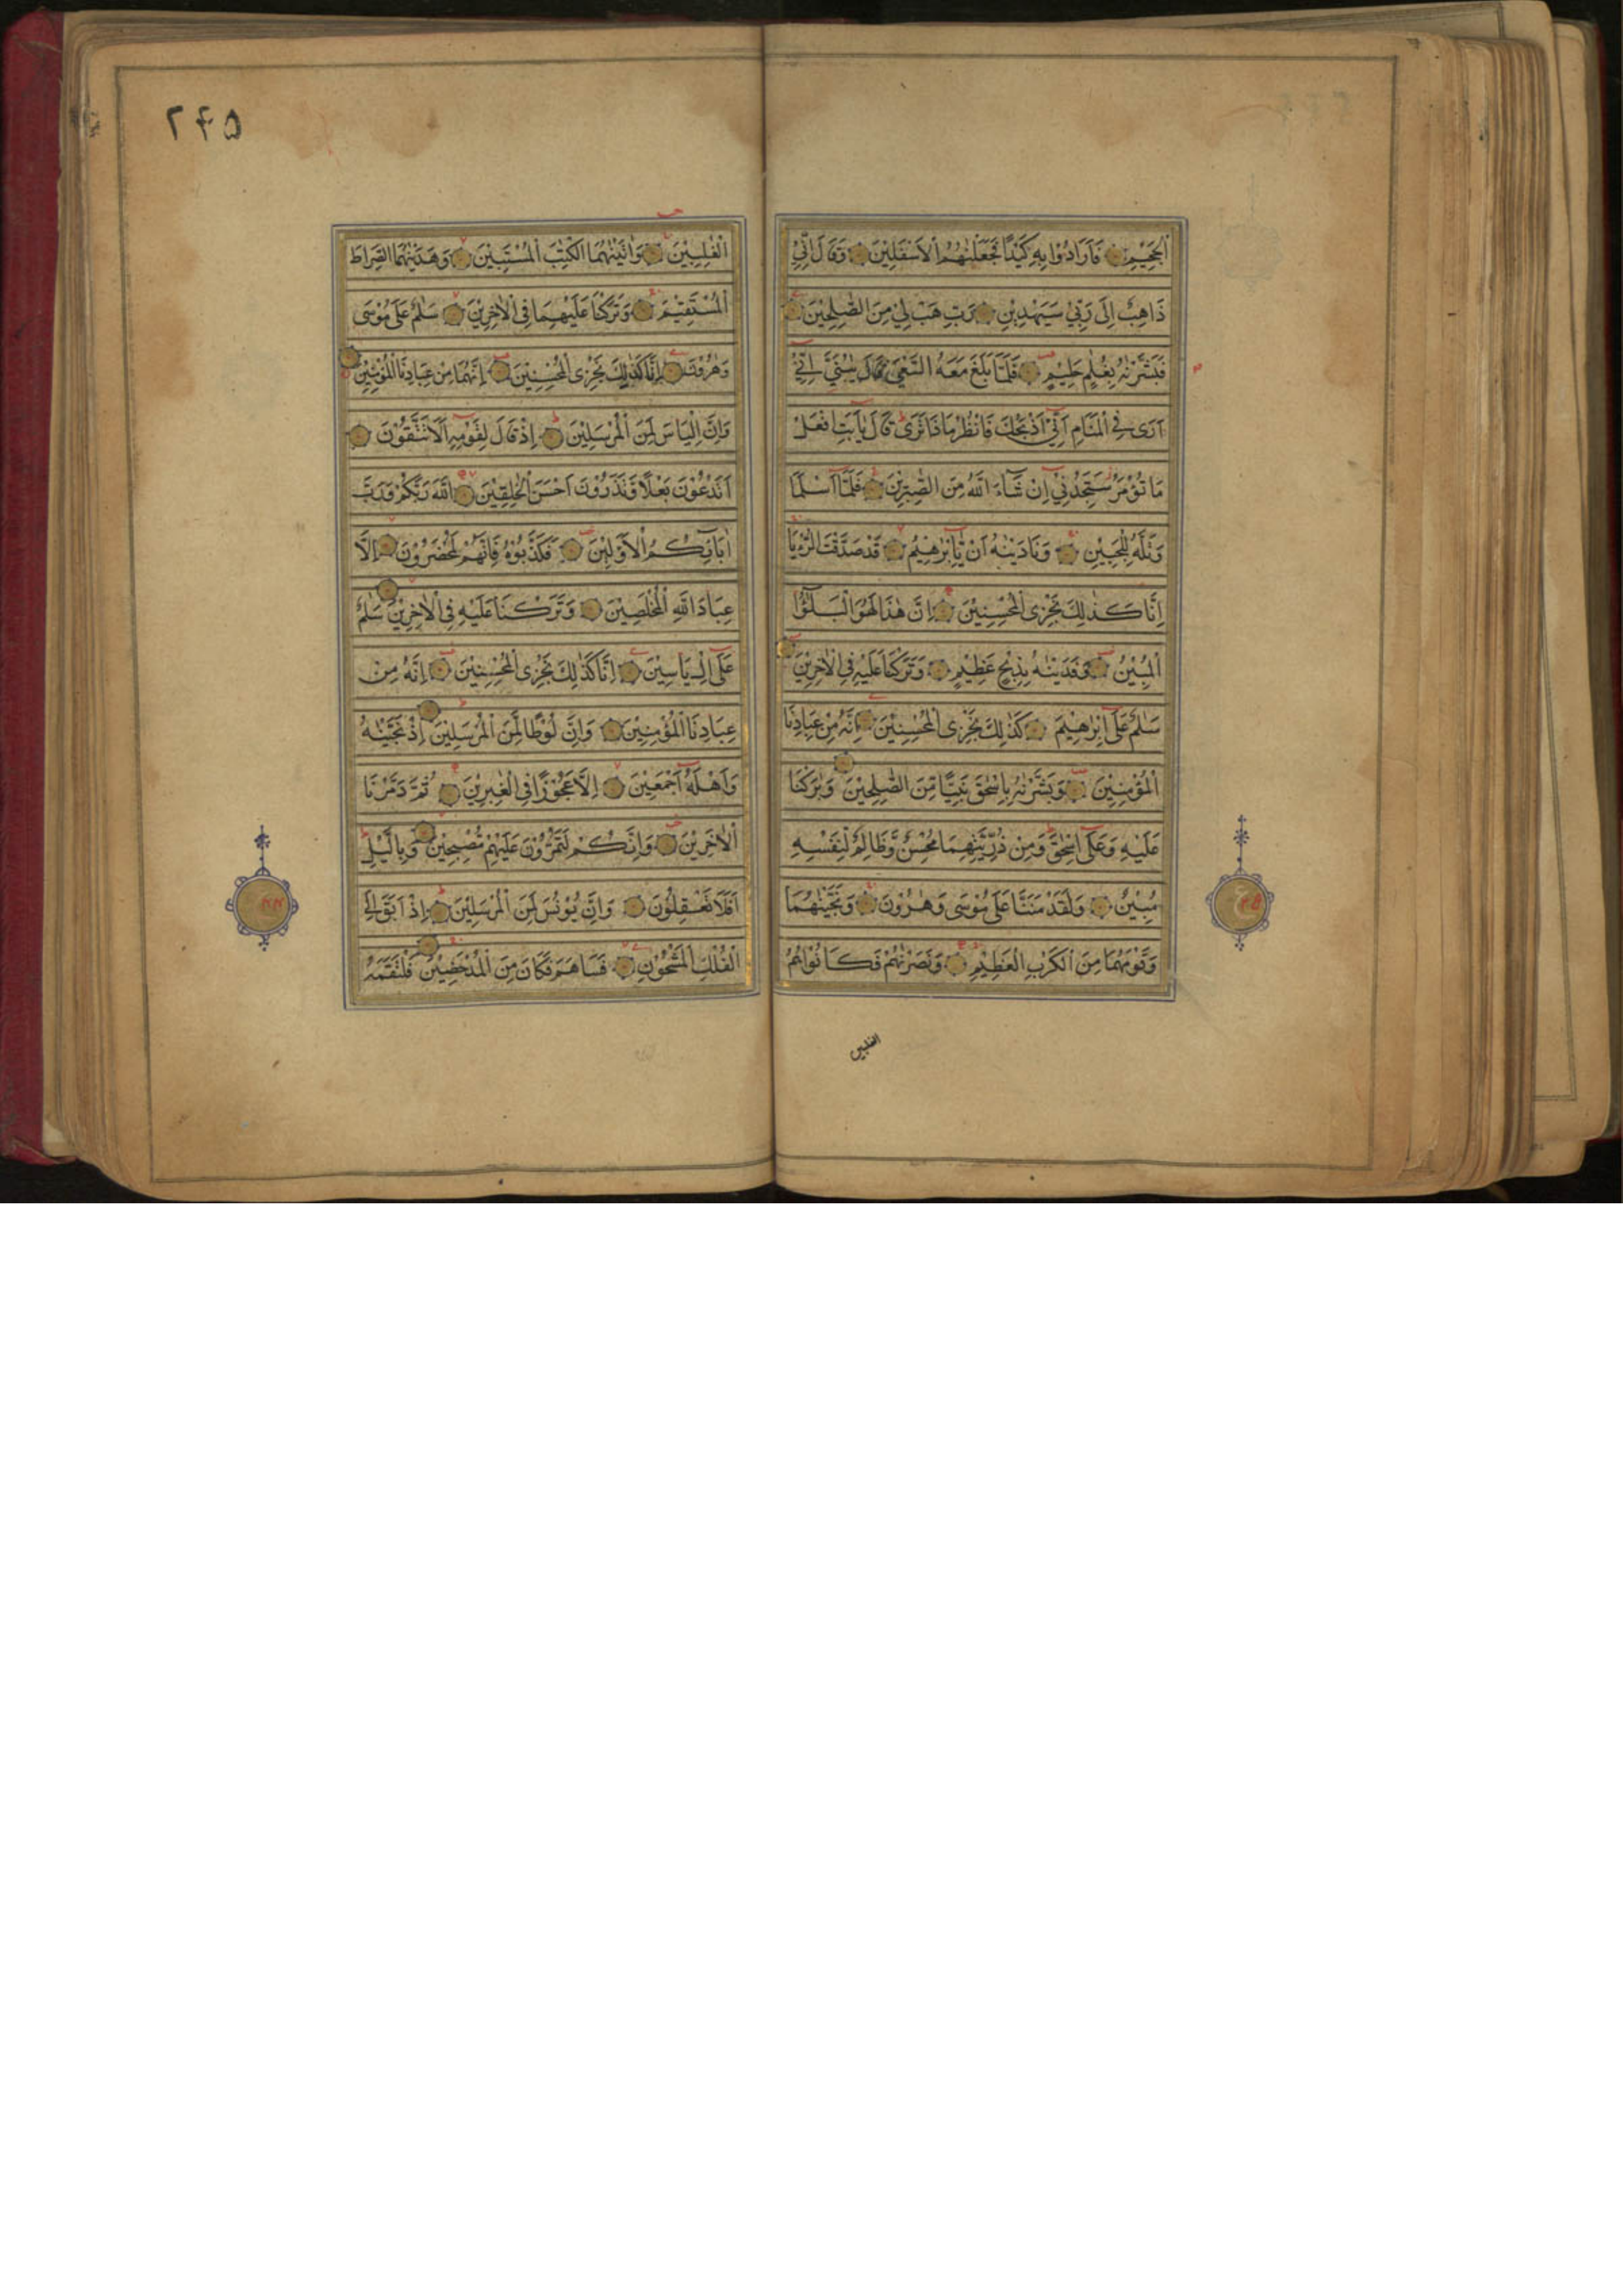 الْجَحِيْمِ فَاَرَادُوْا بِهٖ كَيْدًا فَجَعَلْنٰهُمُ الْاَسْفَلِيْنَ وَقَالَ اِنِّيْ
ذَاهِبٌ اِلٰى رَبِّيْ سَيَهْدِيْنِ رَبِّ هَبْ لِيْ مِنَ الصّٰلِحِيْنَ
فَبَشَّرْنٰهُ بِغُلٰمٍ حَلِيْمٍ فَلَمَّا بَلَغَ مَعَهُ السَّعْيَ قَالَ يٰبُنَيَّ اِنِّيْ
اَرٰى فِي الْمَنَامِ اَنِّيْ اَذْبَحُكَ فَانْظُرْ مَاذَا تَرٰى قَالَ يٰاَبَتِ افْعَلْ
مَا تُؤْمَرُ سَتَجِدُنِيْ اِنْ شَآءَ اللّٰهُ مِنَ الصّٰبِرِيْنَ فَلَمَّا اَسْلَمَا
وَتَلَّهٗ لِلْجَبِيْنِ وَنَادَيْنٰهُ اَنْ يّٰاِبْرٰهِيْمُ قَدْ صَدَّقْتَ الرُّءْيَا
اِنَّا كَذٰلِكَ نَجْزِى الْمُحْسِنِيْنَ اِنَّ هٰذَا لَهُوَ الْبَلٰٓؤُا
الْمُبِيْنُ وَفَدَيْنٰهُ بِذِبْحٍ عَظِيْمٍ وَتَرَكْنَا عَلَيْهِ فِى الْاٰخِرِيْنَ
سَلٰمٌ عَلٰٓى اِبْرٰهِيْمَ كَذٰلِكَ نَجْزِى الْمُحْسِنِيْنَ اِنَّهٗ مِنْ عِبَادِنَا
الْمُؤْمِنِيْنَ وَبَشَّرْنٰهُ بِاِسْحٰقَ نَبِيًّا مِّنَ الصّٰلِحِيْنَ وَبٰرَكْنَا
عَلَيْهِ وَعَلٰٓى اِسْحٰقَ وَمِنْ ذُرِّيَّتِهِمَا مُحْسِنٌ وَّظَالِمٌ لِّنَفْسِهٖ
مُبِيْنٌ وَلَقَدْ مَنَنَّا عَلٰى مُوْسٰى وَهٰرُوْنَ وَنَجَّيْنٰهُمَا
وَقَوْمَهُمَا مِنَ الْكَرْبِ الْعَظِيْمِ وَنَصَرْنٰهُمْ فَكَانُوْا هُمُ
الغلبين
٢۴۵
الْغٰلِبِيْنَ وَاٰتَيْنٰهُمَا الْكِتٰبَ الْمُسْتَبِيْنَ وَهَدَيْنٰهُمَا الصِّرَاطَ
الْمُسْتَقِيْمَ وَتَرَكْنَا عَلَيْهِمَا فِى الْاٰخِرِيْنَ سَلٰمٌ عَلٰى مُوْسٰى
وَهٰرُوْنَ اِنَّا كَذٰلِكَ نَجْزِى الْمُحْسِنِيْنَ اِنَّهُمَا مِنْ عِبَادِنَا الْمُؤْمِنِيْنَ
وَاِنَّ اِلْيَاسَ لَمِنَ الْمُرْسَلِيْنَ اِذْ قَالَ لِقَوْمِهٖٓ اَلَا تَتَّقُوْنَ
اَتَدْعُوْنَ بَعْلًا وَّتَذَرُوْنَ اَحْسَنَ الْخٰلِقِيْنَ اللّٰهَ رَبَّكُمْ وَرَبَّ
اٰبَآئِكُمُ الْاَوَّلِيْنَ فَكَذَّبُوْهُ فَاِنَّهُمْ لَمُحْضَرُوْنَ اِلَّا
عِبَادَ اللّٰهِ الْمُخْلَصِيْنَ وَتَرَكْنَا عَلَيْهِ فِى الْاٰخِرِيْنَ سَلٰمٌ
عَلٰٓى اِلْ يَاسِيْنَ اِنَّا كَذٰلِكَ نَجْزِى الْمُحْسِنِيْنَ اِنَّهٗ مِنْ
عِبَادِنَا الْمُؤْمِنِيْنَ وَاِنَّ لُوْطًا لَّمِنَ الْمُرْسَلِيْنَ اِذْ نَجَّيْنٰهُ
وَاَهْلَهٗٓ اَجْمَعِيْنَ اِلَّا عَجُوْزًا فِى الْغٰبِرِيْنَ ثُمَّ دَمَّرْنَا
الْاٰخَرِيْنَ وَاِنَّكُمْ لَتَمُرُّوْنَ عَلَيْهِمْ مُّصْبِحِيْنَ وَبِالَّيْلِ
اَفَلَا تَعْقِلُوْنَ وَاِنَّ يُوْنُسَ لَمِنَ الْمُرْسَلِيْنَ اِذْ اَبَقَ اِلَى
الْفُلْكِ الْمَشْحُوْنِ فَسَاهَمَ فَكَانَ مِنَ الْمُدْحَضِيْنَ فَالْتَقَمَهُ